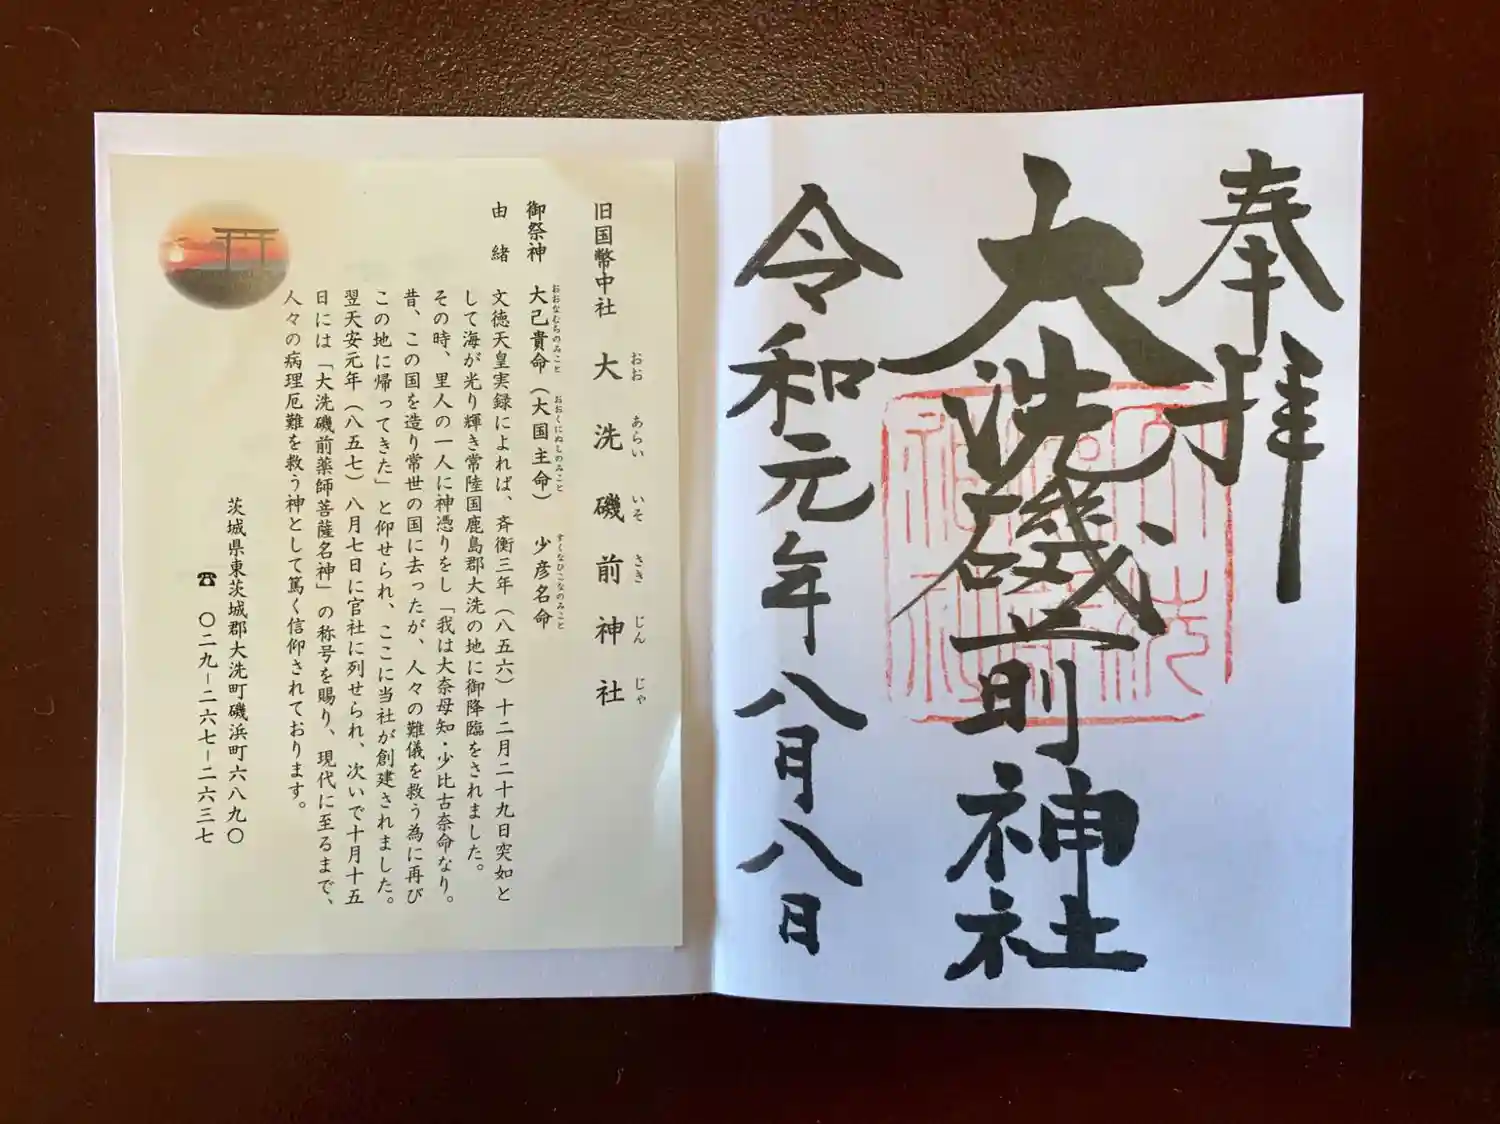 奉拝
大洗磯前神社
令和元年八月八日
旧国幣中社 大洗磯前神社
おお あらい いそ さき じん じゃ
御祭神 大己貴命（大国主命） 少彦名命
おおなむちのみこと おおくにぬしのみこと すくなひこなのみこと
由緒
文徳天皇実録によれば、斉衡三年（八五六）十二月二十九日突如と
して海が光り輝き常陸国鹿島郡大洗の地に御降臨をされました。
その時、里人の一人に神憑りをし「我は大奈母知・少比古奈命なり。
昔、この国を造り常世の国に去ったが、人々の難儀を救う為に再び
この地に帰ってきた」と仰せられ、ここに当社が創建されました。
翌天安元年（八五七）八月七日に官社に列せられ、次いで十月十五
日には「大洗磯前薬師菩薩名神」の称号を賜り、現代に至るまで、
人々の病理厄難を救う神として篤く信仰されております。
茨城県東茨城郡大洗町磯浜町六八九〇
☎ 〇二九－二六七－二六三七